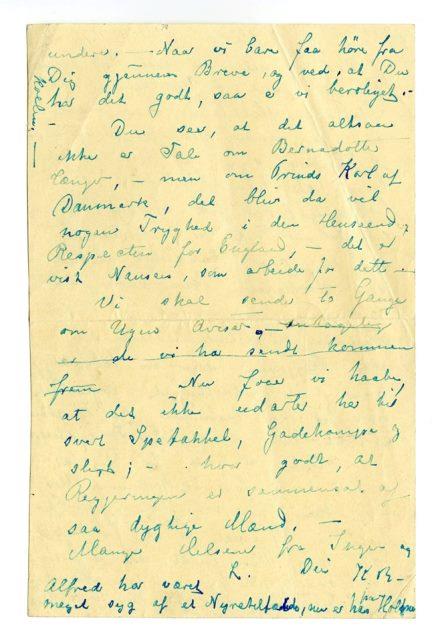 undere. — Naar vi bare faa höre fra
Dig gjennem Breve, og ved, at Du
har det godt, saa e vi beroliget. —
Du ser, at det altsaa
ikke er Tale om Bernadotte
længer, — men om Prinds Karl af
Danmark, det blir da vel
nogen Tryghed i den Henseende,
Respecten for England, — det er
vist Nansen, som arbeide for dette
Vi skal sende to Gange
om Ugen Aviser,
er de vi har sendt kommen
frem Nu faar vi haabe,
at det ikke udarter her til
svert Spetakkel, Gadekampe og
sligt; — hvor godt, at
Regjeringen er sammensat af
saa dygtige Mænd. —
Mange Hilsener fra Inger og
L. Din
Alfred har været
meget syg af et Nyretilfælde, nu er han